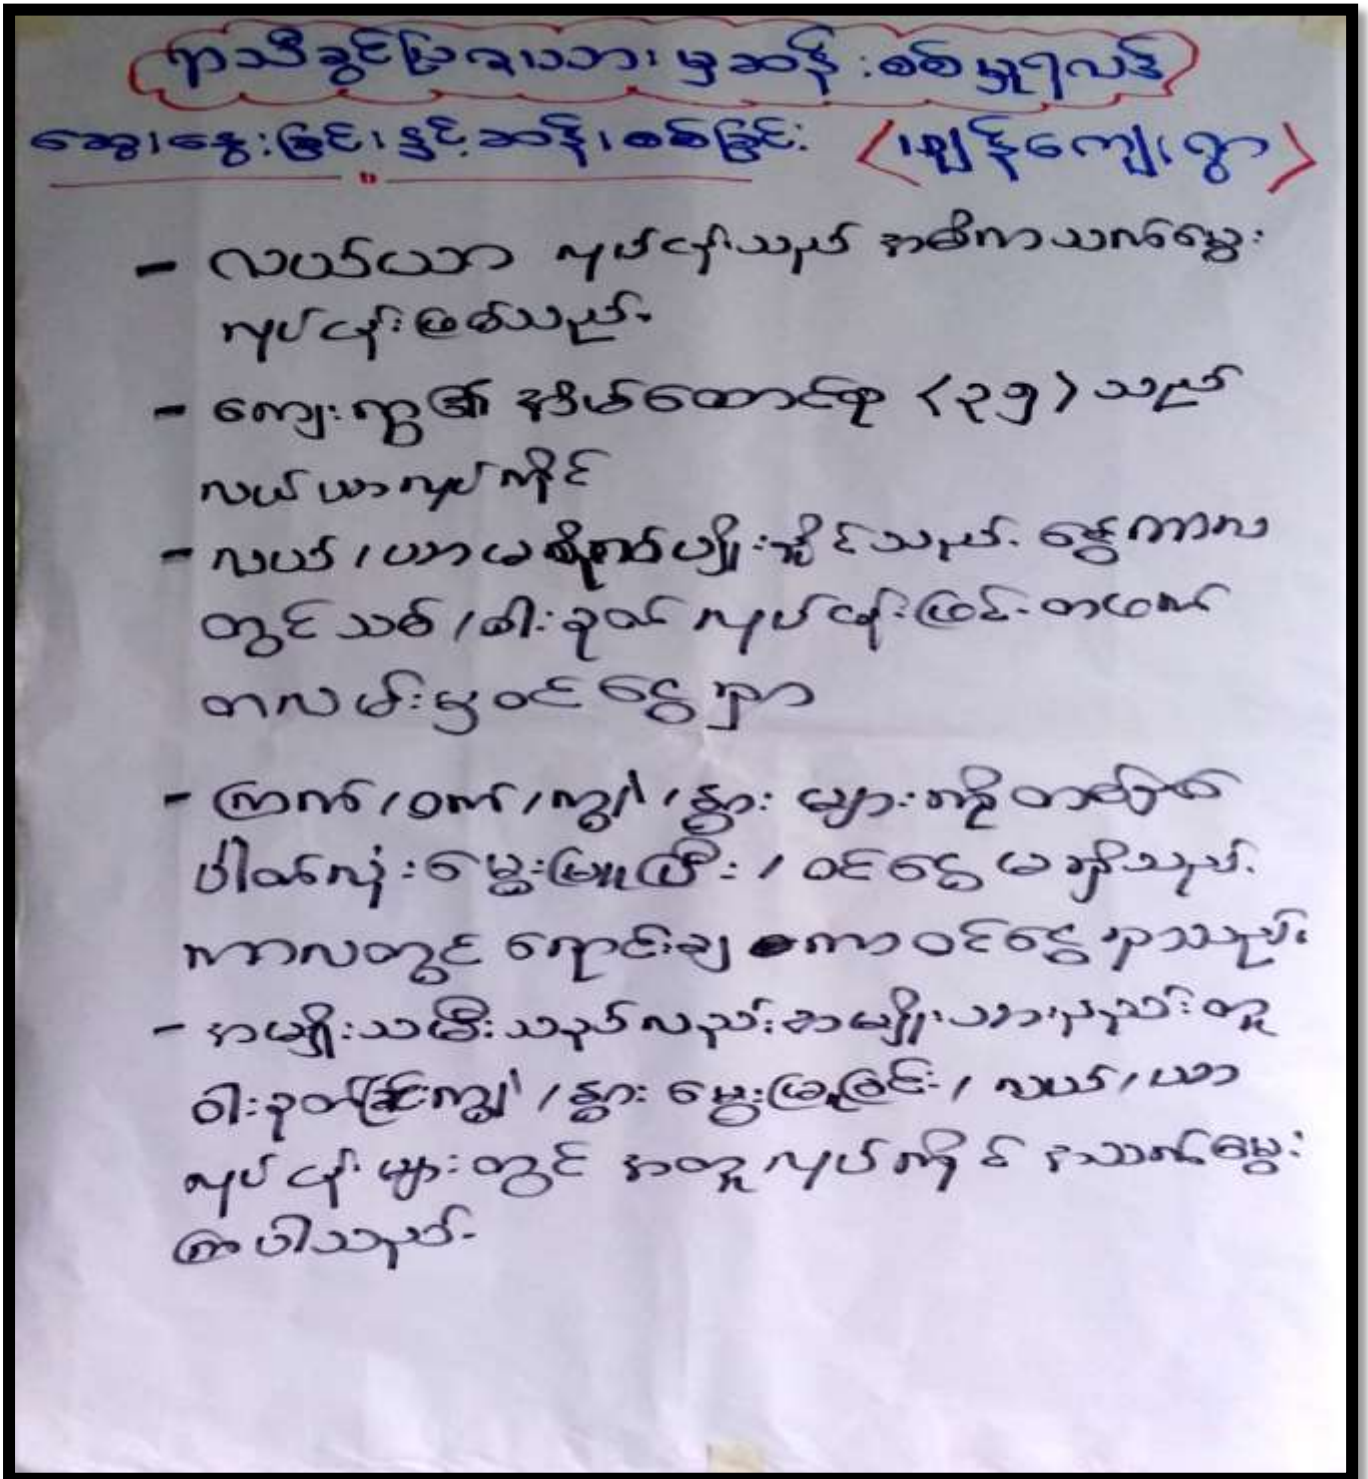 ရာသီခွင်ပြဇယားမှဆန်းစစ်မှုရလဒ်
ဆွေးနွေးခြင်းနှင့်ဆန်းစစ်ခြင်း ကျေးရွာ
- လယ်ယာ လုပ်ငန်းသည် အဓိကအသက်မွေး
လုပ်ငန်းဖြစ်သည်.
- ကျေးရွာ၏ အိမ်ထောင်စု <၃၅> သည်
လယ်ယာလုပ်ကိုင်
- လယ် / ယာမစိုက်ပျိုးနိုင်သည်. နွေကာလ
တွင်သစ် / ဝါးခုတ် လုပ်ငန်းဖြင့် တဖက်
တလမ်းမှဝင်ငွေရှာ
- ကြက် / ဝက် / ကျွဲ / နွား များကိုတစ်နှစ်
ပါတ်လုံးမွေးမြူပြီး / ဝင်ငွေမရှိသည်.
ကာလတွင် ရောင်းချကာဝင်ငွေရှာသည်.
- အမျိုးသမီးသည်လည်းအမျိုးသားနည်းတူ
ဝါးခုတ်ခြင်းကျွဲ / နွား မွေးမြူခြင်း / လယ် / ယာ
လုပ်ငန်းများတွင် အတူလုပ်ကိုင် အသက်မွေး
ကြပါသည်.